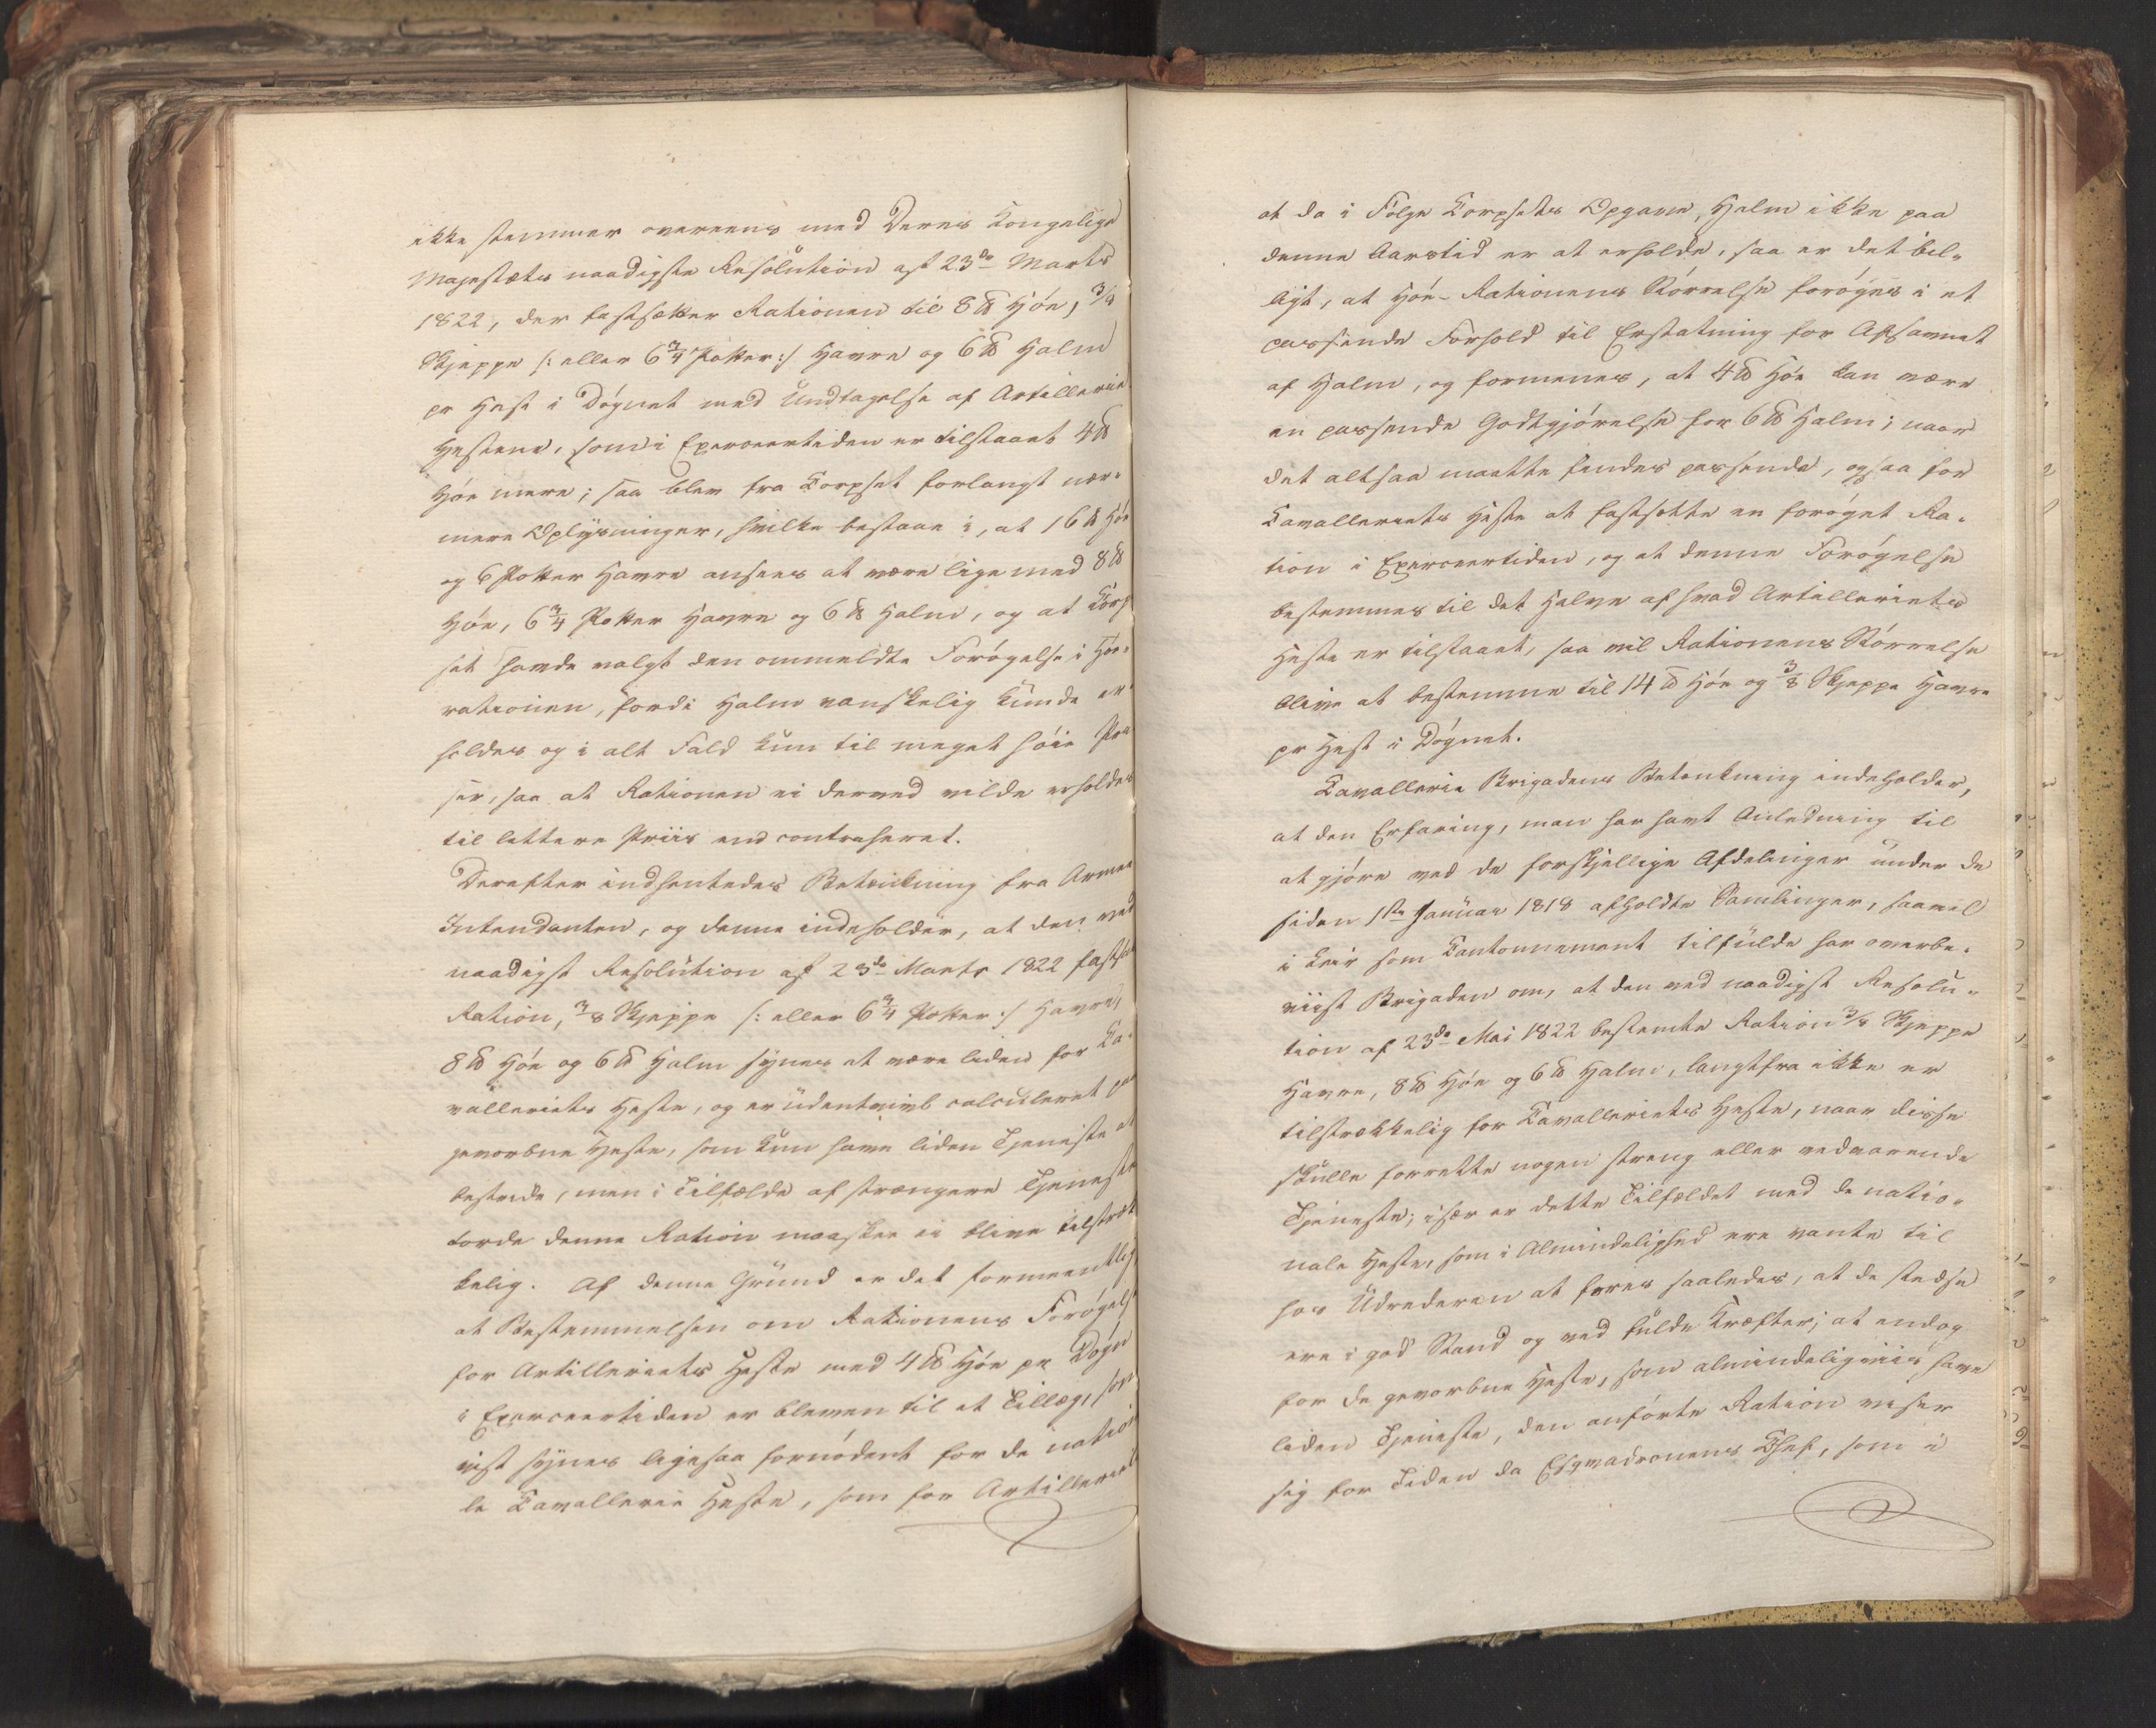 ikke stemmer overeens med Deres Kongelige
Majestæts naadigste Resolution af 23de Marts
1822, der fastsætter Rationen til 8 ℔ Høe, 3/8
Skjeppe /: eller 6 3/4 Potter :/ Havre og 6 ℔ Halm
pr Hest i Døgnet med Undtagelse af Artillerie
Hestene, som i Exerceertiden er tilstaaet 4 ℔
Høe mere; saa blev fra Corpset forlangt nær-
mere Oplysninger, hvilke bestaae i, at 16 ℔ Høe
og 6 Potter Havre ansees at være lige med 8 ℔
Høe, 6 3/4 Potter Havre og 6 ℔ Halm, og at Corp
set havde valgt den ommeldte Forøgelse i Høe-
rationen, fordi Halm vanskelig kunde er-
holdes og i alt Fald kun til meget høie Pri
ser, saa at Rationen ei derved vilde erholdes
til lettere Priis end contraheret.
Derefter indhentedes Betænkning fra Armee
Intendanten, og denne indeholder, at den ved
naadigst Resolution af 23de Marts 1822 fastsat
Ration, 3/8 Skjeppe /: eller 6 3/4 Potter :/ Havre,
8 ℔ Høe og 6 ℔ Halm synes at være liden for Ca-
valleriets Heste, og er udentvivl calculeret paa
gevorbne Heste, som kun have liden Tjeneste at
bestride, men i Tilfælde af strængere Tjeneste
torde denne Ration maaskee ei blive tilstræk
kelig. Af denne Grund er det formeentlig
at Bestemmelsen om Rationens Forøgelse
for Artilleriets Heste med 4 ℔ Høe pr Døgn
i Exerceertiden er bleven til et Tillæg, som
vist synes ligesaa fornødent for de natio
le Cavallerie Heste, som for Artilleriets
at da i Følge Corpsets Opgave, Halm ikke paa
denne Aarstid er at erholde, saa er det bil-
ligt, at Høe-Rationens Størrelse forøges i et
passende Forhold til Erstatning for Afsavnet
af Halm, og formenes, at 4 ℔ Høe kan være
en passende Godtgjørelse for 6 ℔ Halm; naar
det altsaa maatte findes passende, ogsaa for
Cavalleriets Heste at fastsætte en forøget Ra-
tion i Exerceertiden, og at denne Forøgelse
bestemmes til det Halve af hvad Artilleriets
Heste er tilstaaet, saa vil Rationens Størrelse
blive at bestemme til 14 ℔ Høe og 3/8 Skjeppe Havre
pr Hest i Døgnet.
Cavallerie Brigadens Betænkning indeholder,
at den Erfaring, man har havt Anledning til
at gjøre ved de forskjellige Afdelinger under de
siden 1ste Januar 1818 afholdte Samlinger, saavel
i Leir som Cantonnement tilfulde har overbe-
viist Brigaden om, at den ved naadigst Resolu-
tion af 23de Mai 1822 bestemte Ration 3/8 Skjeppe
Havre, 8 ℔ Høe og 6 ℔ Halm, langtfra ikke er
tilstrækkelig for Cavalleriets Heste, naar disse
skulle forrette nogen streng eller vedvarende
Tjeneste; især er dette Tilfældet med de natio-
nale Heste, som i Almindelighed ere vante til
hos Udrederen at fores saaledes, at de stedse
ere i god Stand og ved fulde Kræfter; at endog
for de gevorbne Heste, som almindeligviis have
liden Tjeneste, den anførte Ration viser
sig for Tiden da Esqvadronens Chef, som i